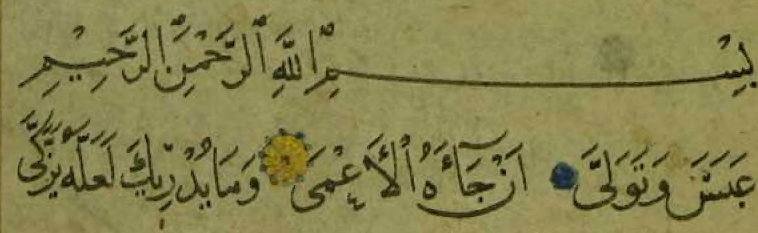 بِسْمِ اللَّهِ ٱلرَّحْمٰنِ ٱلرَّحِيْمِ
عَبَسَ وَتَوَلَىَّ اَنْ جَآءَهُ ٱلْأَعْمَىَ وَمَا يُدْرِيكَ لَعَلَّهُ يَزَّكَّى